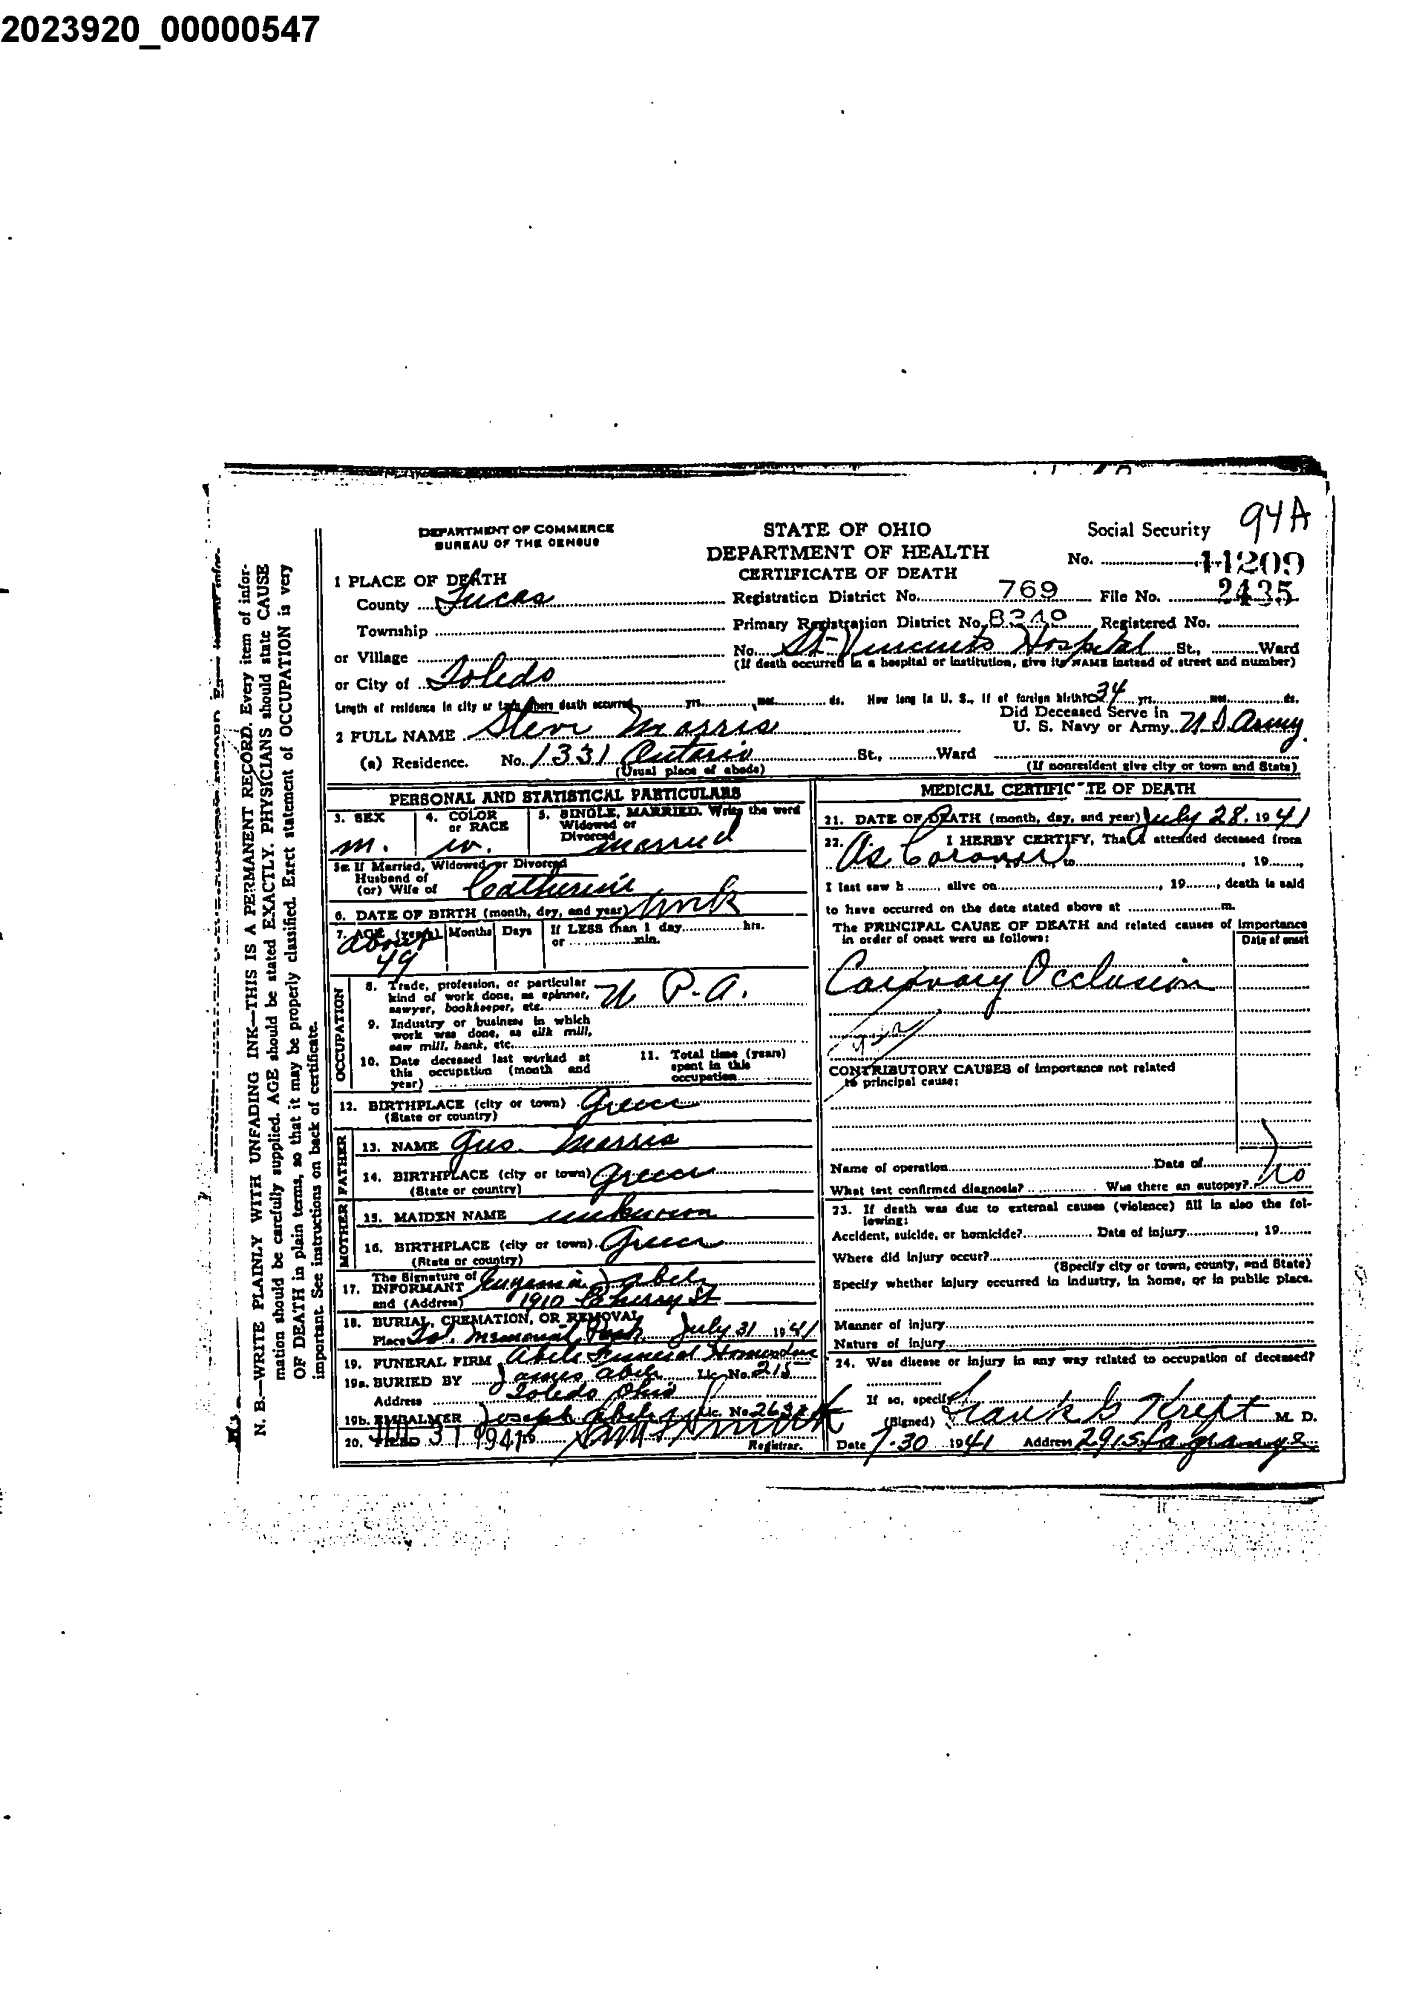 2023920_00000547
94A
DEPARTMENT OF COMMERCE
BUREAU OF THE CENSUS
STATE OF OHIO
DEPARTMENT OF HEALTH
CERTIFICATE OF DEATH
Social Security
No.
11209
1 PLACE OF DEATH
County Lucas
Registration District No. 769 File No. 2435
Township
Primary Registration District No. 8340 Registered No.
or Village
No. St. Vincents Hospital St., Ward
(If death occurred in a hospital or institution, give its NAME instead of street and number)
or City of Toledo
Length of residence in city or town where death occurred yrs. mos. ds. How long in U. S., if of foreign birth? 34 yrs. mos. ds.
2 FULL NAME Steve Morris
Did Deceased Serve in
U. S. Navy or Army U S Army.
(a) Residence. No. 1331 Ontario St., Ward
(Usual place of abode)
(If nonresident give city or town and State)
PERSONAL AND STATISTICAL PARTICULARS
3. SEX
m.
4. COLOR
or RACE
w.
5. SINGLE, MARRIED. Write the word
Widowed or
Divorced married
5a If Married, Widowed or Divorced
Husband of
(or) Wife of Catherine
6. DATE OF BIRTH (month, day, and year) Unk
7. AGE (years) Months Days If LESS than 1 day hrs.
or min.
about
49
OCCUPATION
8. Trade, profession, or particular
kind of work done, as spinner,
sawyer, bookkeeper, etc. W P.A.
9. Industry or business in which
work was done, as silk mill,
saw mill, bank, etc.
10. Date deceased last worked at
this occupation (month and
year)
11. Total time (years)
spent in this
occupation
12. BIRTHPLACE (city or town) Greece
(State or country)
FATHER
13. NAME Gus. Morris
14. BIRTHPLACE (city or town) Greece
(State or country)
MOTHER
15. MAIDEN NAME unknown
16. BIRTHPLACE (city or town) Greece
(State or country)
The Signature of
17. INFORMANT Eugenia Abele
and (Address) 1910 Cherry St
18. BURIAL, CREMATION, OR REMOVAL
Place Tol. Memorial Park July 31 1941
19. FUNERAL FIRM Abele Funeral Home
19a. BURIED BY James Abele Lic. No. 215
Address Toledo Ohio
19b. EMBALMER Joseph Abele Lic. No.
20. FILED JUL 31 1941 19
Registrar.
MEDICAL CERTIFICATE OF DEATH
21. DATE OF DEATH (month, day, and year) July 28, 1941
22. I HERBY CERTIFY, That I attended deceased from
As Coroner, 19 to , 19
I last saw h alive on , 19 , death is said
to have occurred on the date stated above at m.
The PRINCIPAL CAUSE OF DEATH and related causes of importance
in order of onset were as follows:
Date of onset
Coronary Occlusion
CONTRIBUTORY CAUSES of importance not related
to principal cause:
Name of operation Date of
What test confirmed diagnosis? Was there an autopsy? No
23. If death was due to external causes (violence) fill in also the fol-
lowing:
Accident, suicide, or homicide? Date of injury , 19
Where did injury occur?
(Specify city or town, county, and State)
Specify whether injury occurred in industry, in home, or in public place.
Manner of injury
Nature of injury
24. Was disease or injury in any way related to occupation of deceased?
If so, specify
(Signed) Frank G Kreft M. D.
Date 7-30 1941 Address 2915 Lagrange
N. B.—WRITE PLAINLY WITH UNFADING INK—THIS IS A PERMANENT RECORD. Every item of infor-
mation should be carefully supplied. AGE should be stated EXACTLY. PHYSICIANS should state CAUSE
OF DEATH in plain terms, so that it may be properly classified. Exact statement of OCCUPATION is very
important. See instructions on back of certificate.